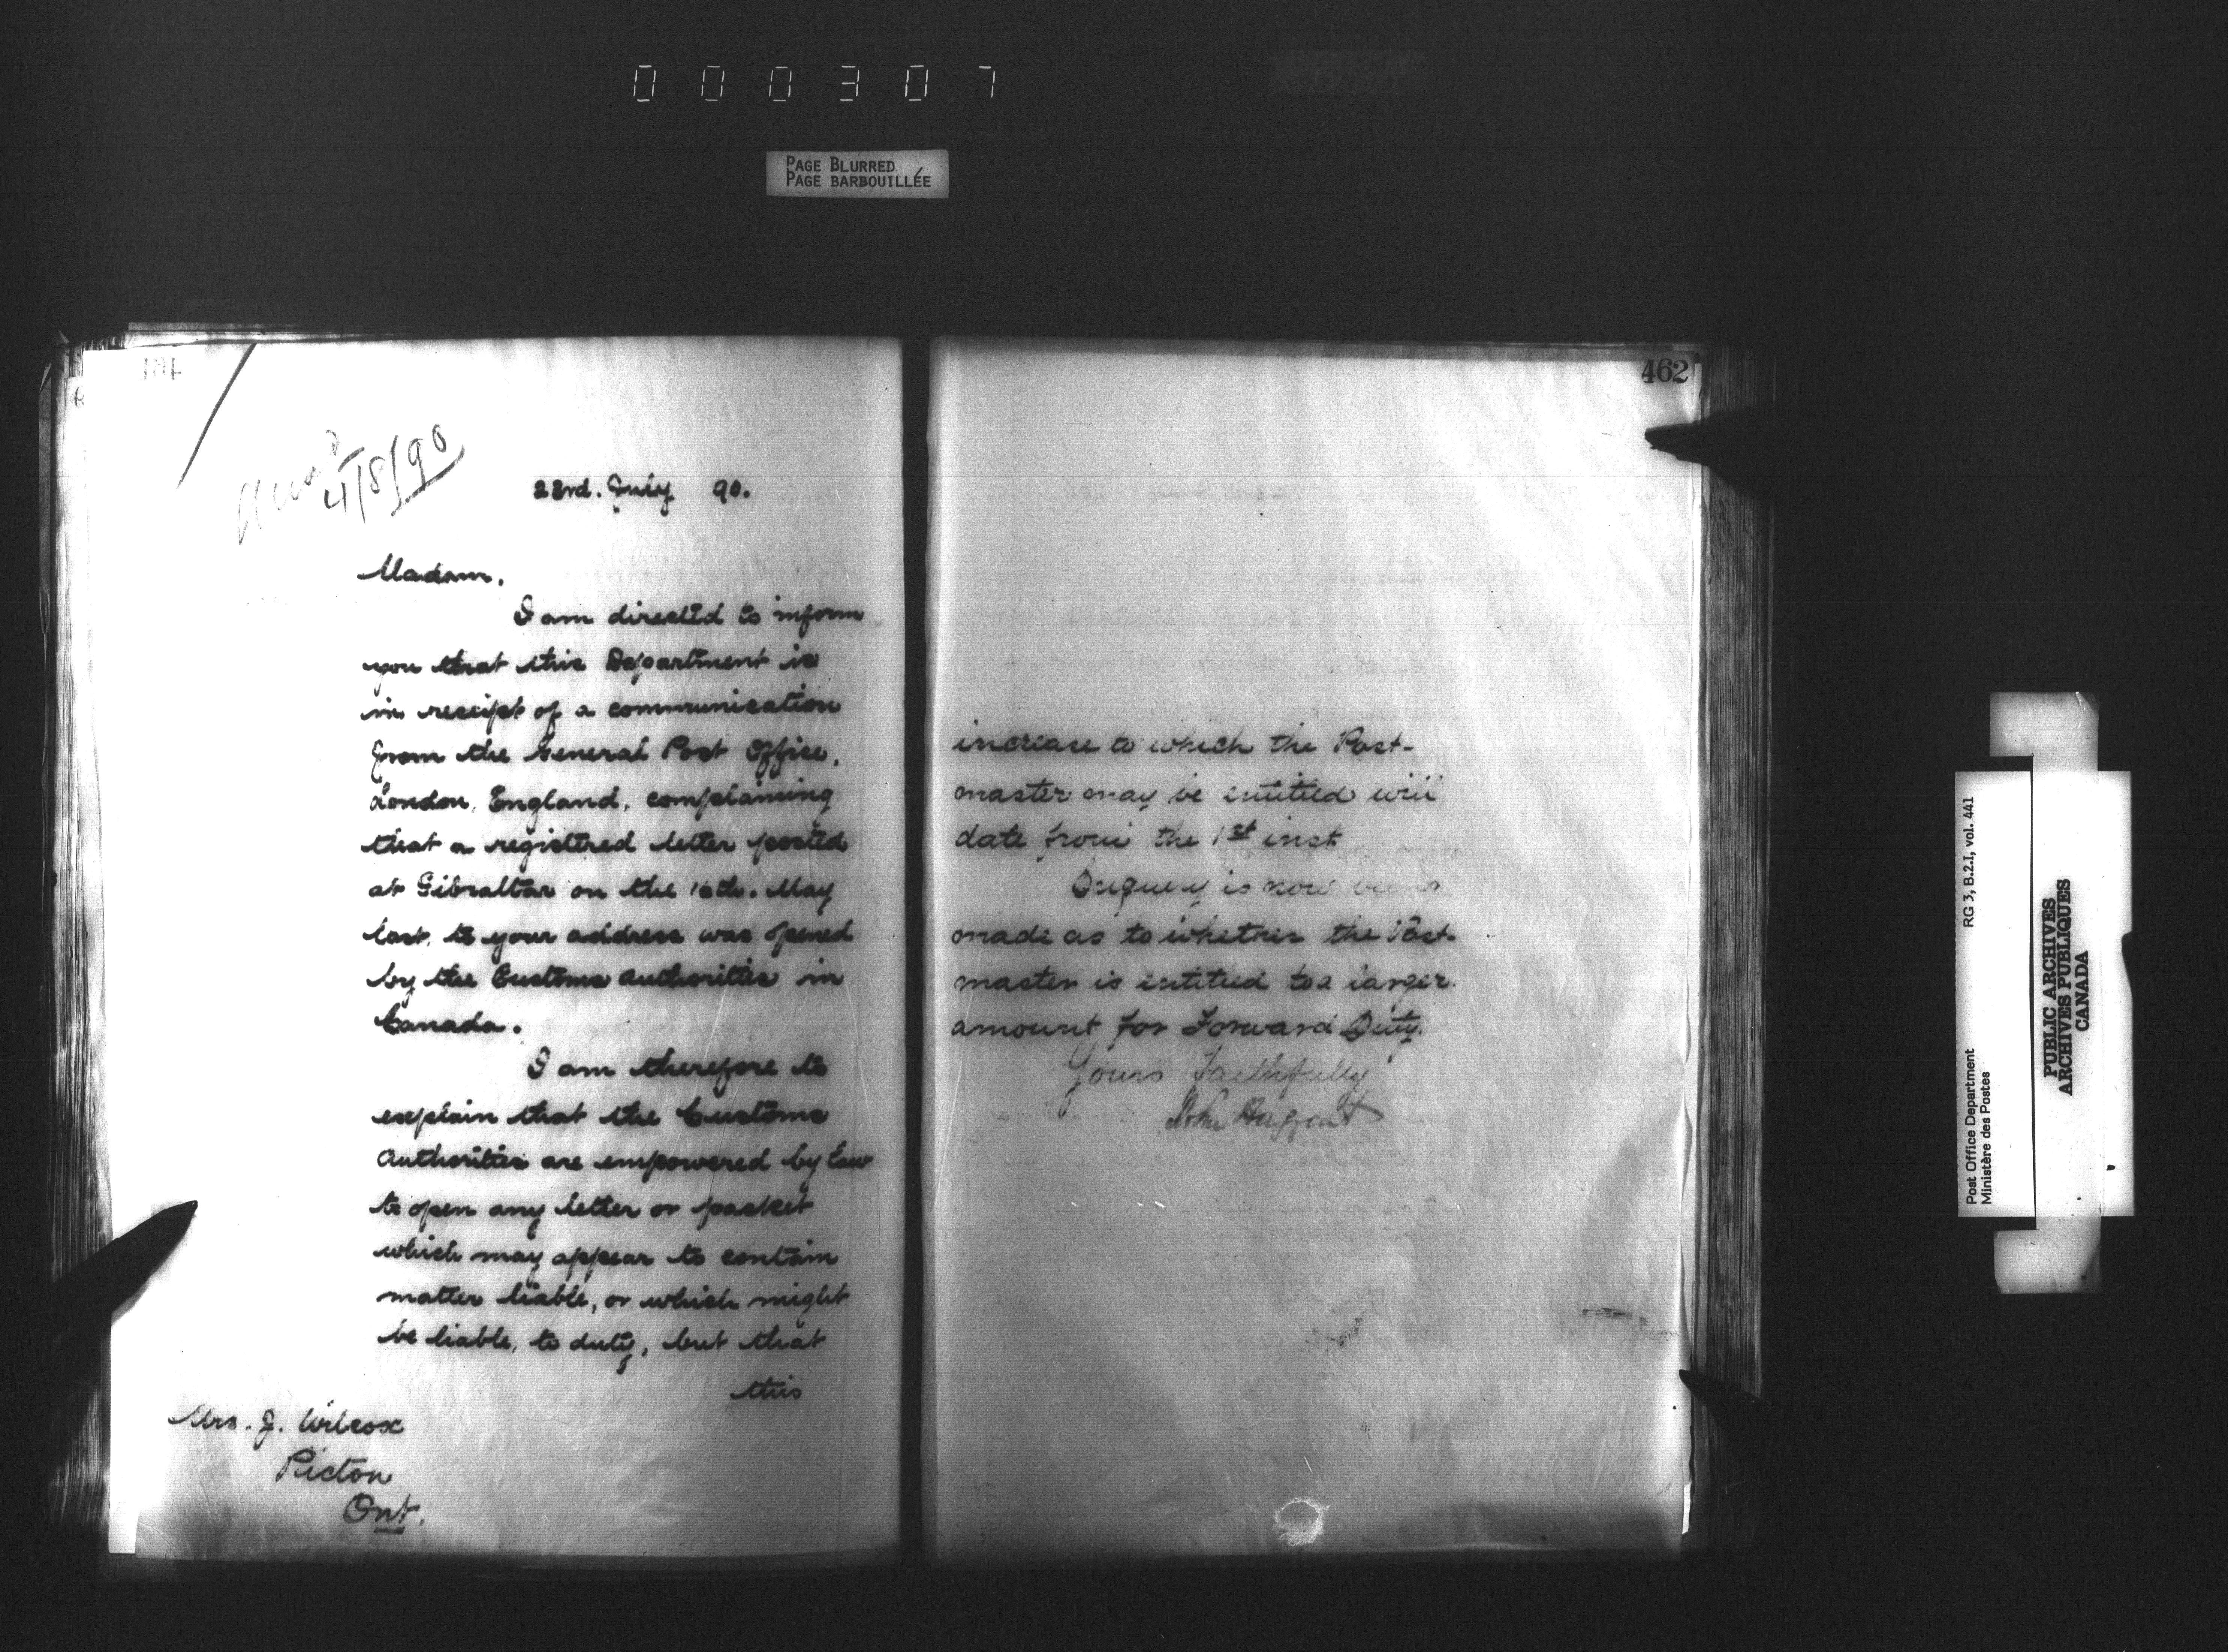 000307
PAGE BLURRED
PAGE BARBOUILLÉE
4/8/90
23rd. July 90.
Madam,
I am directed to inform
you that this Department is
in receipt of a communication
from the General Post Office,
London, England, complaining
that a registered letter posted
at Gibraltar on the 16th. May
last, to your address was opened
by the Customs Authorities in
Canada.
I am therefore to
explain that the Customs
Authorities are empowered by Law
to open any letter or packet
which may appear to contain
matter liable, or which might
be liable, to duty, but that
this
Mrs. J. Wilcox
Picton
Ont.
462
increase to which the Post-
master may be entitled will
date from the 1st inst
Enquiry is now being
made as to whether the Post-
master is entitled to a larger
amount for Forward Duty.
Yours faithfully
John Haggart
Post Office Department
Ministère des Postes
RG 3, B.2.I, vol. 441
PUBLIC ARCHIVES
ARCHIVES PUBLIQUES
CANADA